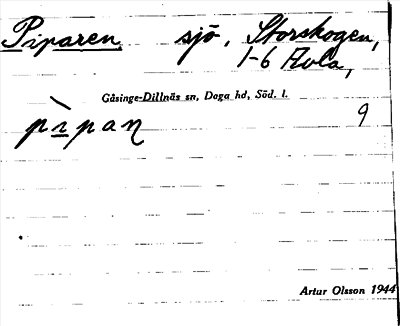 Piparen sjö, Storskogen,
1-6 Avla,
Gåsinge-Dillnäs sn, Daga hd, Söd. l.
pìpan 9
Artur Olsson 1944